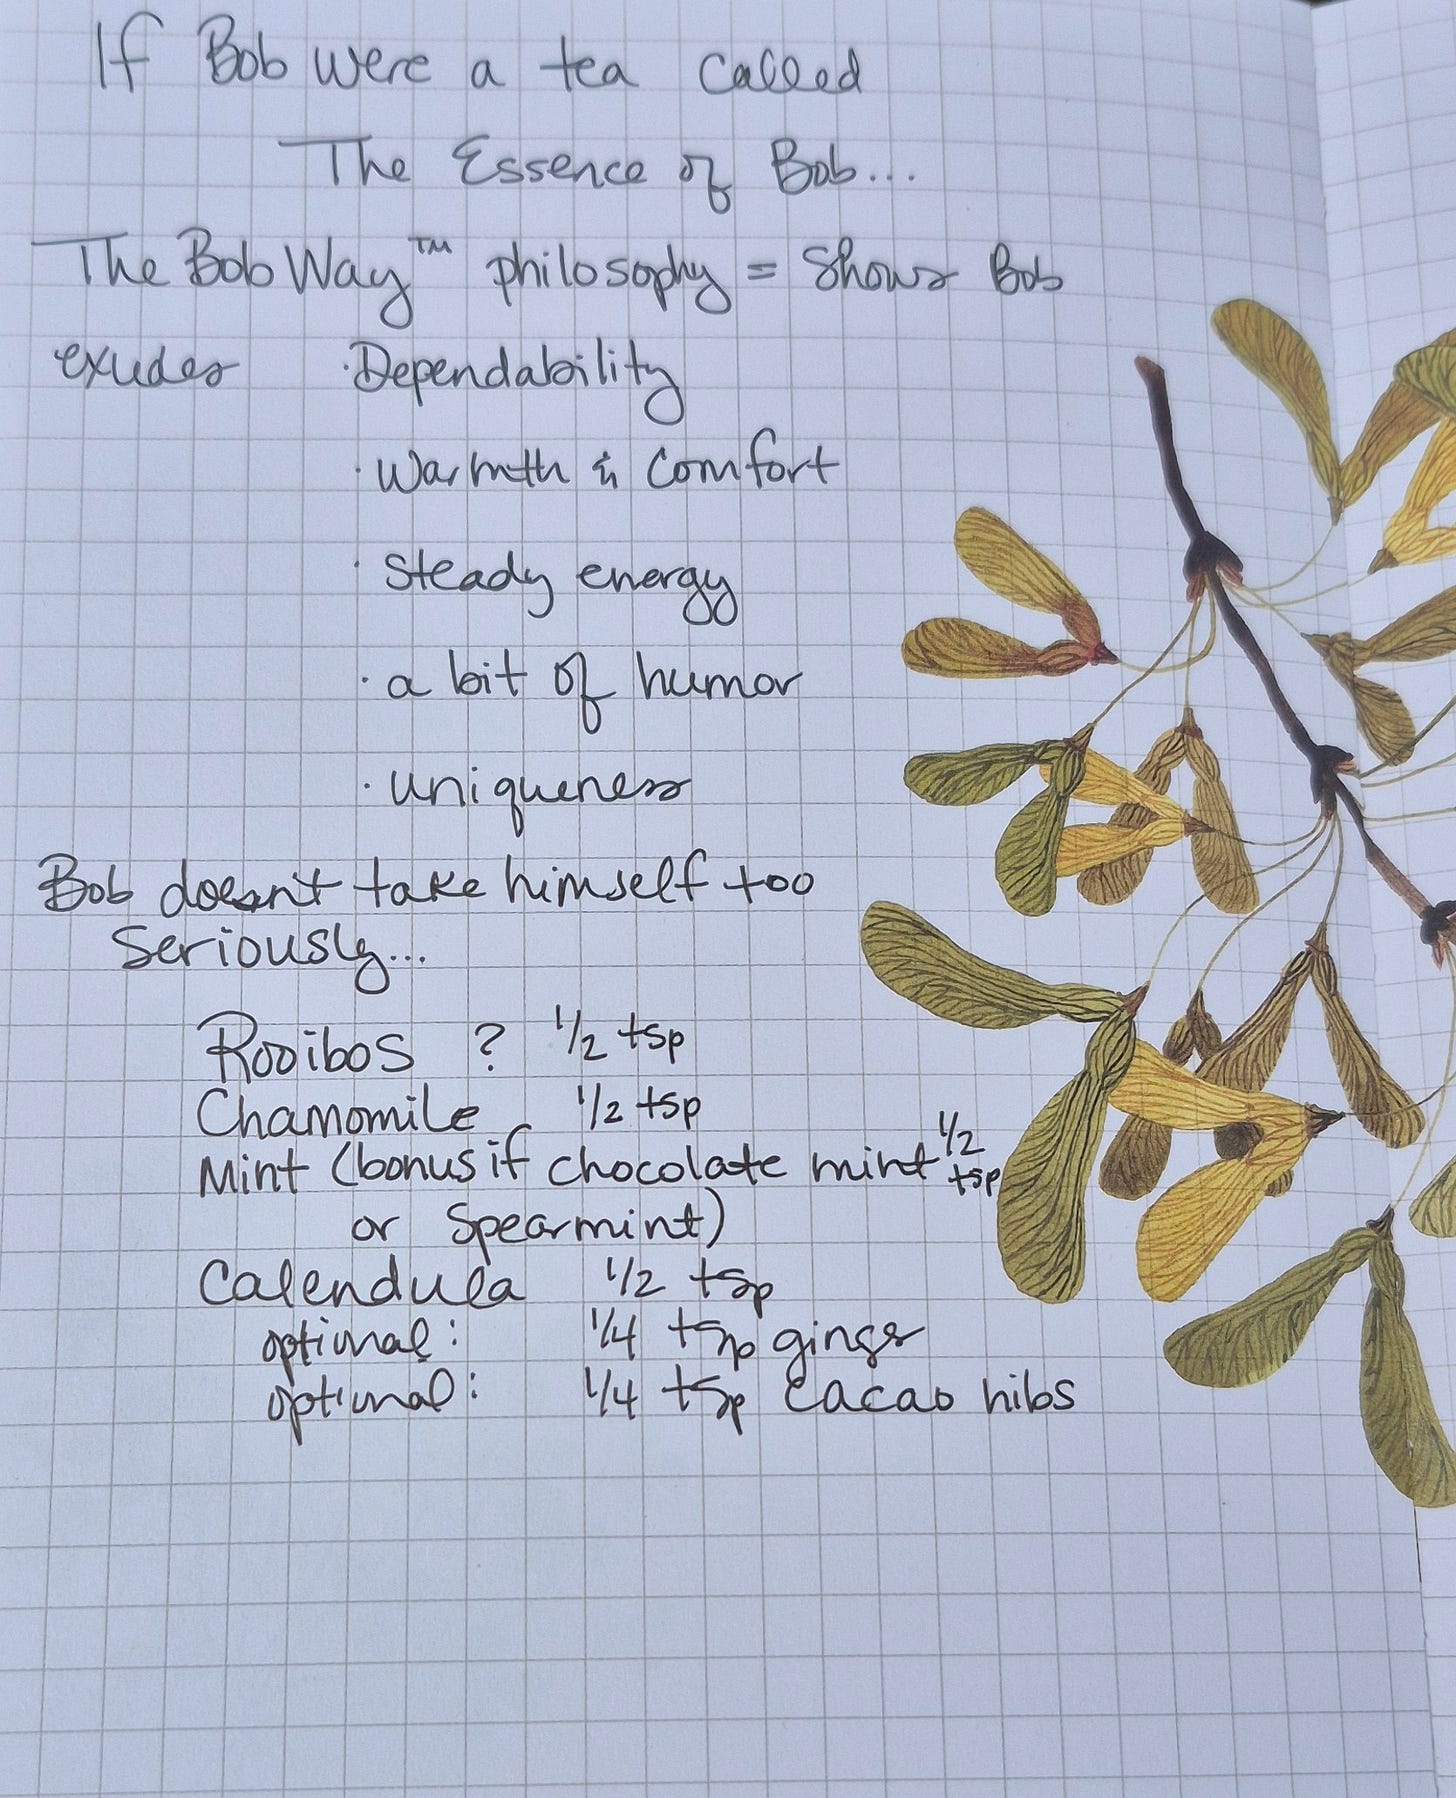 If Bob were a tea called
The Essence of Bob...
The Bob Way™ philosophy = Shows Bob
exudes · Dependability
· Warmth & Comfort
· Steady energy
· a bit of humor
· uniqueness
Bob doesn't take himself too
Seriously...
Rooibos ? 1/2 tsp
Chamomile 1/2 tsp
Mint (bonus if chocolate mint 1/2 tsp
or Spearmint)
Calendula 1/2 tsp
optional: 1/4 tsp ginger
optional: 1/4 tsp cacao nibs